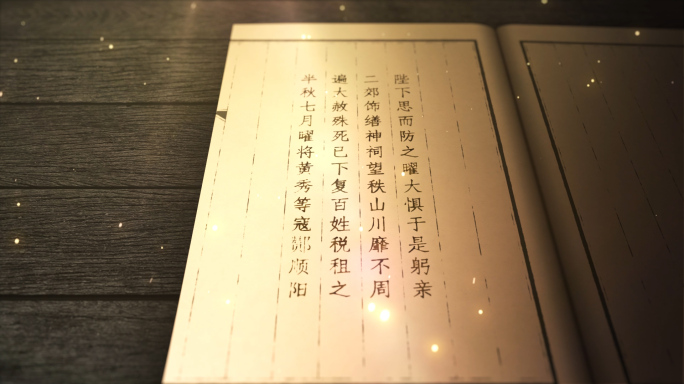 陛下思而防之曜大惧于是躬亲
二郊饰缮神祠望秩山川靡不周
遍大赦殊死已下复百姓税租之
半秋七月曜将黄秀等寇酂顺阳